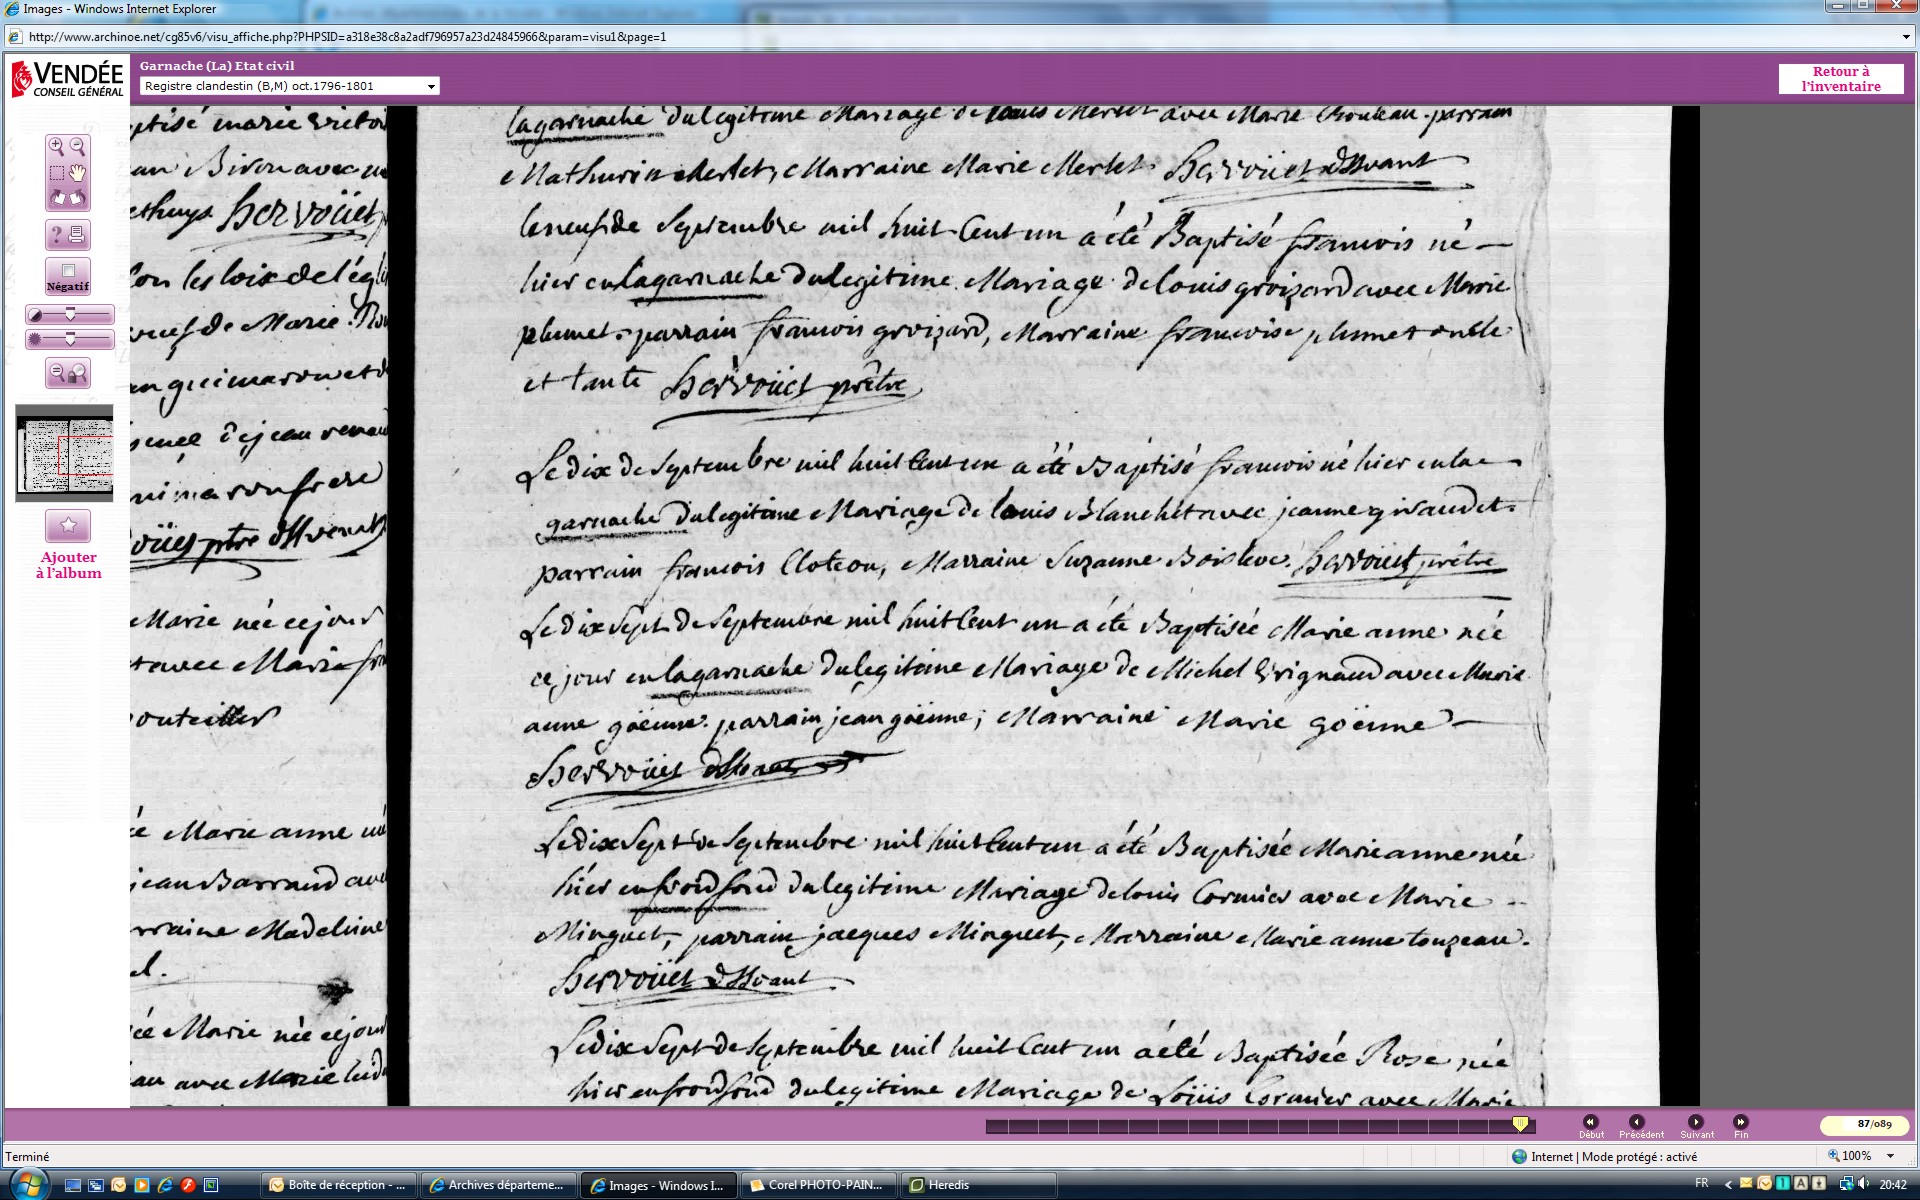 Images - Windows Internet Explorer
http://www.archinoe.net/cg85v6/visu_affiche.php?PHPSID=a318e38c8a2adf796957a23d24845966&param=visu1&page=1
VENDÉE
CONSEIL GÉNÉRAL
Garnache (La) Etat civil
Registre clandestin (B,M) oct.1796-1801
Retour à
l'inventaire
Négatif
Ajouter
à l'album
marie victoi
an Biron avec
Hervoüet
lon les loix de l'égli
de Marie
an guimaron et d
de jean renau
frere
Marie née ce jour
avec Marie fran
née Marie anne
jean Barraud ave
rraine Madeleine
el.
née Marie née ce jour
au avec Marie
lagarnache du legitime Mariage de louis Merlet avec Marie Crouleau. parrain
Mathurin Merlet, Marraine Marie Merlet. Hervoüet dssvant
le neuf de Septembre mil huit Cent un a été Baptisé francois né
hier en lagarnache du legitime Mariage de louis groizard avec Marie
plumet. parrain francois groizard, Marraine francoise plumet oncle
et tante Hervoüet prêtre
Le dix de Septembre mil huit Cent un a été Baptisé francois né hier en la
garnache du legitime Mariage de louis Blanchet avec jeanne giraudet.
parrain francois Cloteau, Marraine Suzanne Boisleve. Hervoüet prêtre
Le dix Sept de Septembre mil huit Cent un a été Baptisée Marie anne née
ce jour en lagarnache du legitime Mariage de Michel Erignaud avec Marie
anne goënne. parrain jean goënne, Marraine Marie goënne
Hervoüet dssvant
Le dix Sept de Septembre mil huit Cent un a été Baptisée Marie anne née
hier en froidfond du legitime Mariage de louis Cormier avec Marie
Minguet, parrain jacques Minguet, Marraine Marie anne touzeau.
Hervoüet dssvant
Le dix Sept de Septembre mil huit Cent un a été Baptisée Rose née
hier en froidfond du legitime Mariage de Loüis Cormier avec Marie
Début
Précédent
Suivant
Fin
87/089
Terminé
Internet | Mode protégé : activé
100%
Boîte de réception - ...
Archives départeme...
Images - Windows I...
Corel PHOTO-PAIN...
Heredis
FR
20:42